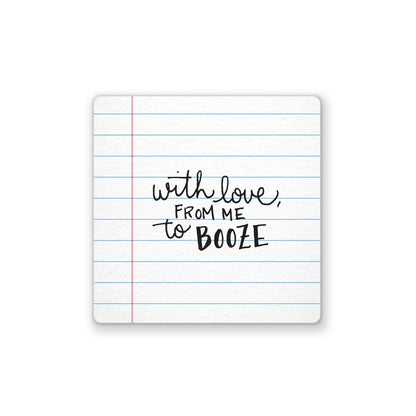 with love,
FROM ME
to BOOZE